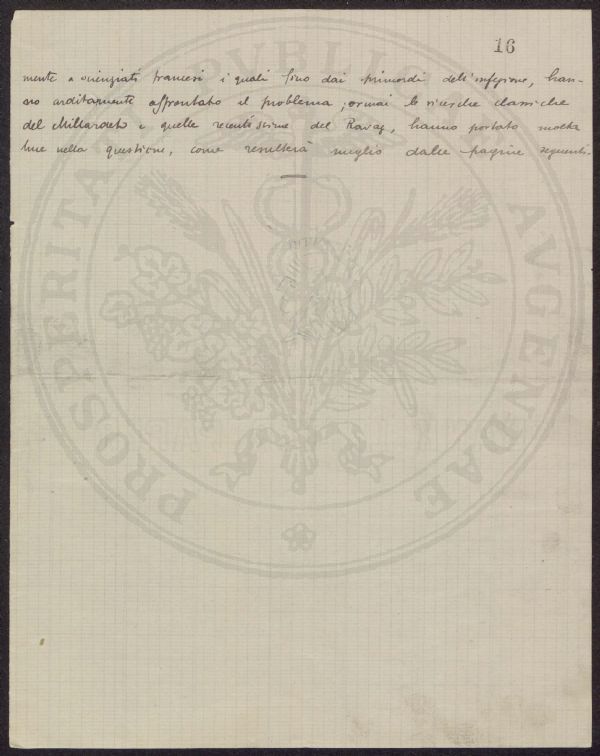 16
mente a scienziati francesi i quali fino dai primordi dell'infezione, han-
no arditamente affrontato il problema; ormai le ricerche classiche
del Millardet e quelle recentissime del Ravaz, hanno portato molta
luce nella questione, come resulterà meglio dalle pagine seguenti.
PROSPERITATI PUBLICAE AVGENDAE